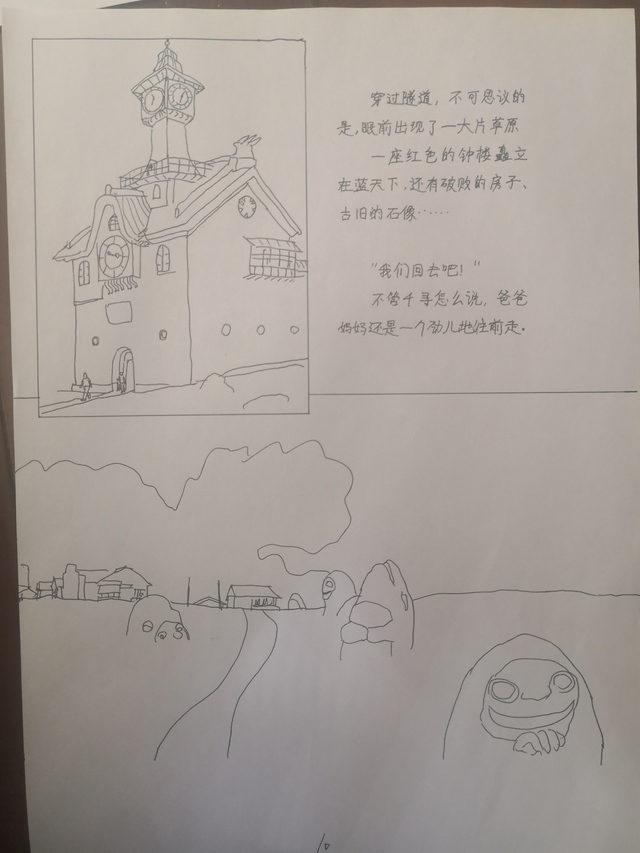 穿过隧道，不可思议的
是，眼前出现了一大片草原
一座红色的钟楼矗立
在蓝天下，还有破败的房子、
古旧的石像……
“我们回去吧！”
不管千寻怎么说，爸爸
妈妈还是一个劲儿地往前走。
10